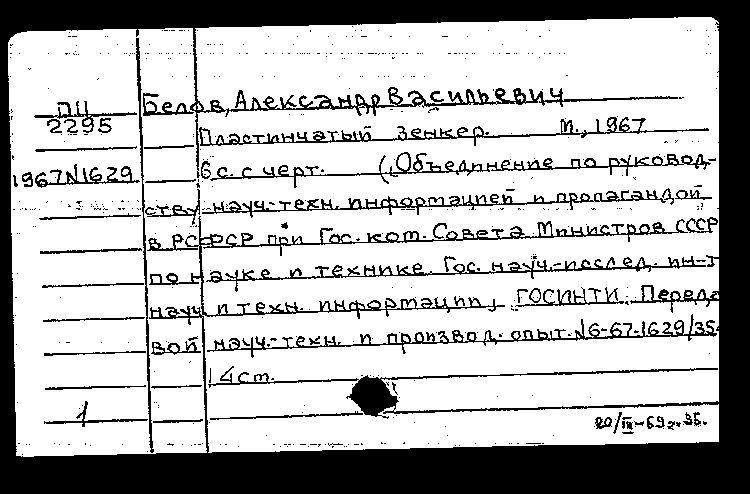 Белов, Александр Васильевич
ПЦ
2295
Пластинчатый зенкер. М., 1967
1967 N1629
6с. с черт. (Объединение по руковод-
ству науч.-техн. информацией и пропагандой
в РСФСР при Гос. ком. Совета Министров СССР
по науке и технике. Гос. науч.-исслед. ин-т
науч. и техн. информации, ГОСИНТИ. Передо
вой науч.-техн. и производ. опыт. N6-67-1629/35
14 cm.
1
20/IX-69г. 35.